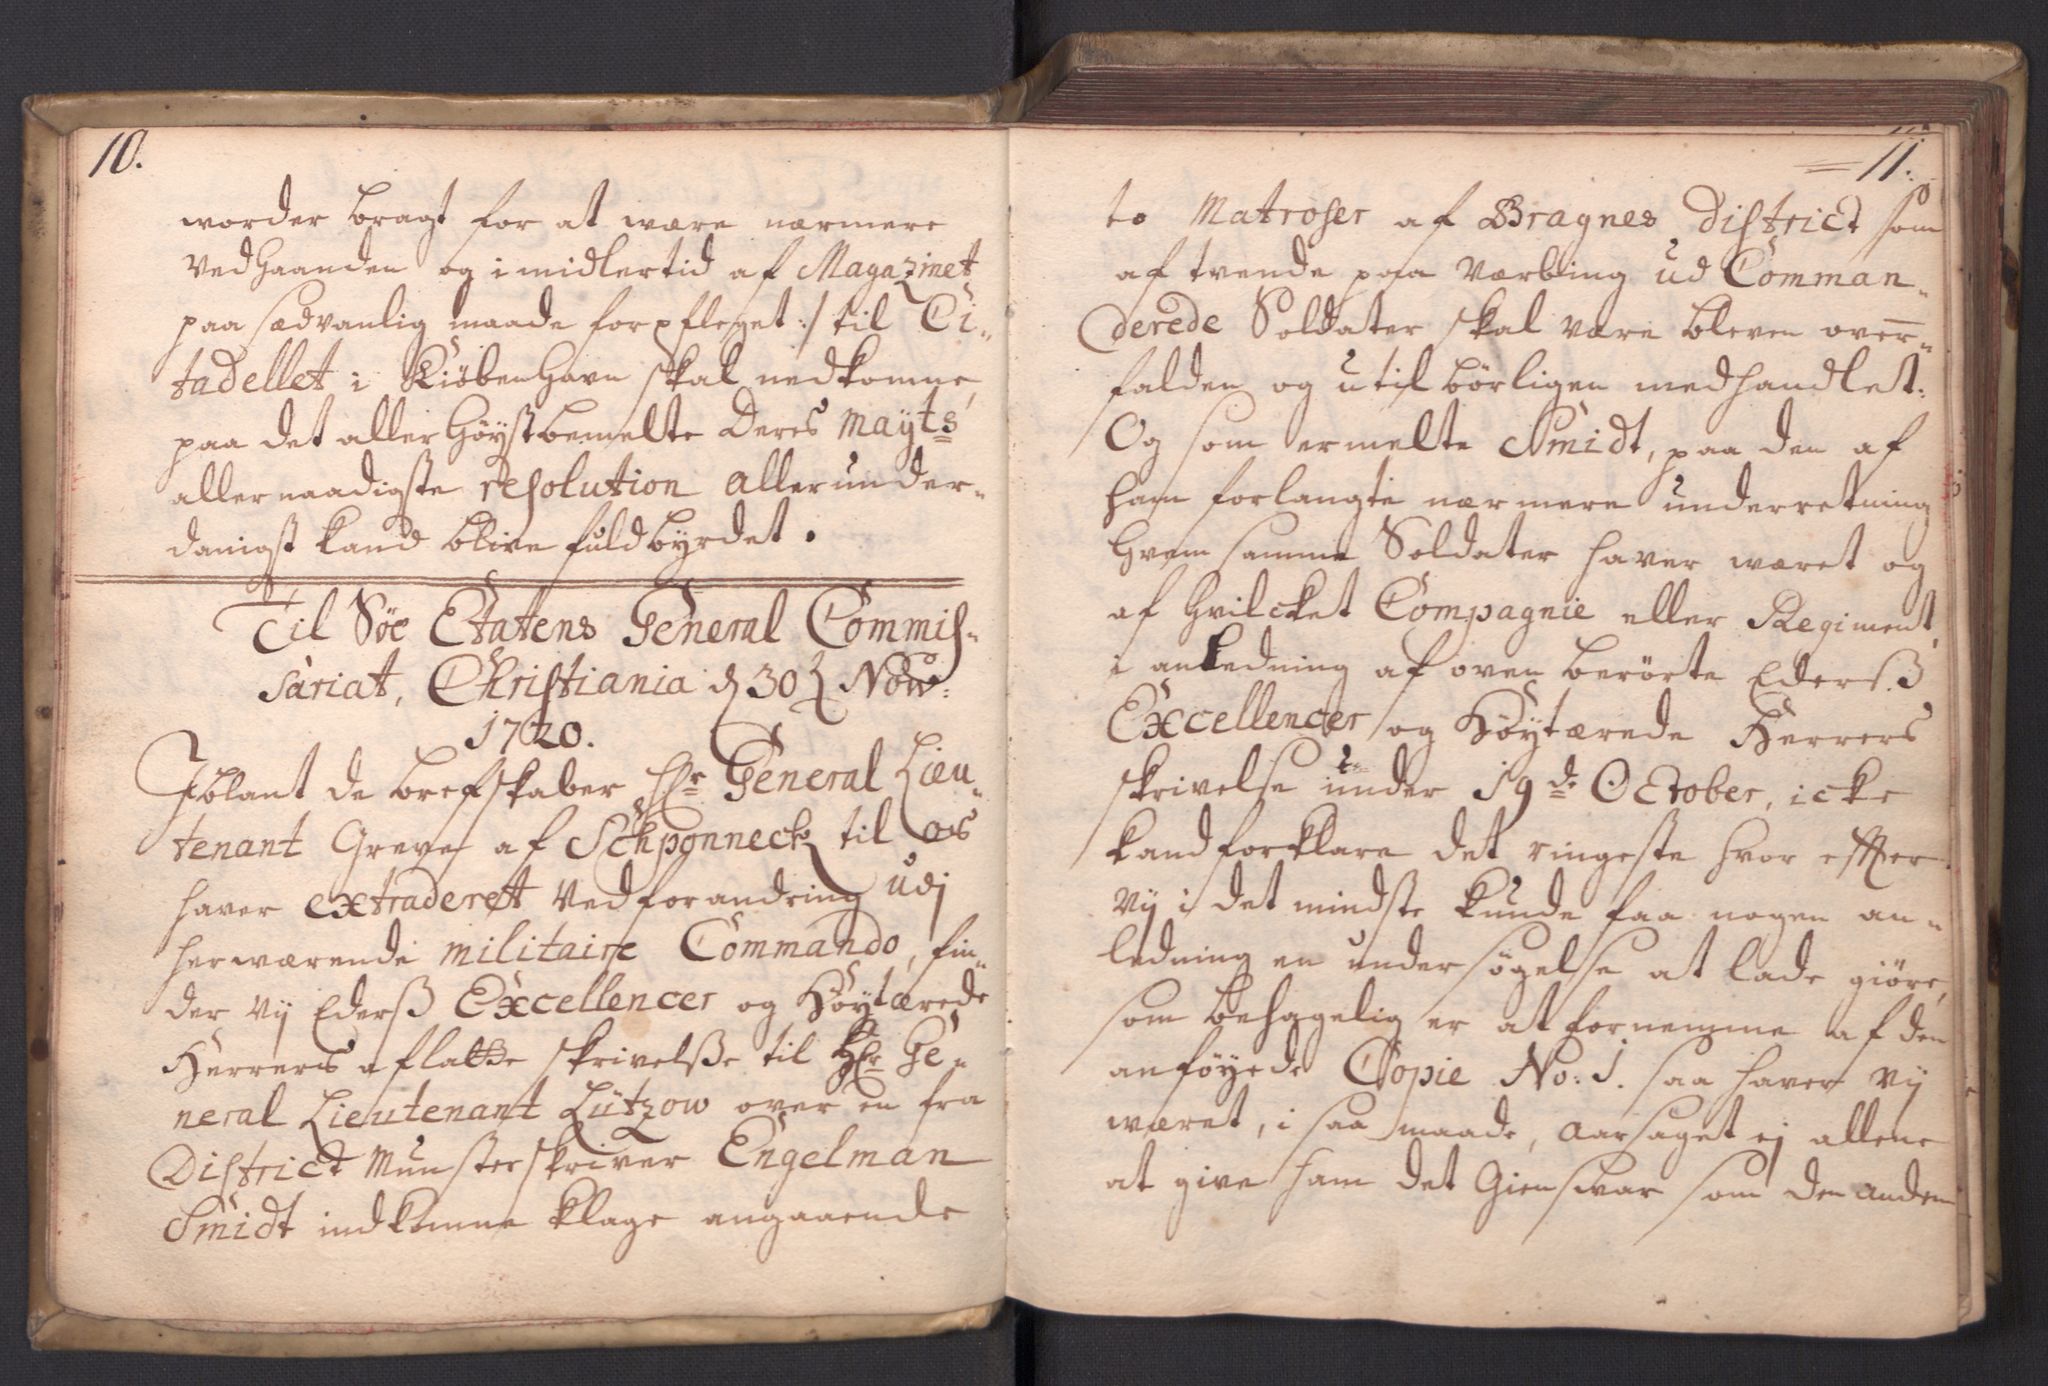 10.
worder bragt for at wære nærmere
Ved Haanden og imidlertid af Magazinet
paa sædvanlig maade forpfleget :/ til Ci-
tadellet i Kiöbenhavn skal nedkomme,
paa det aller Höystbemelte Deres Mayts
allernaadigste resolution allerunder-
danigst kand blive fuldbyrdet.
Til Söe Etatens General Commis-
sariat, Christiania d 30 Nov:
1720.
Iblant de brefskaber Hr General Lieu-
tenant Greve af Schponneck til os
haver extraderet Ved forandring udj
herwærende militaire Commando, fin-
der vij Ederß Excellencer og Höytærede
Herrers aflatte skrivelße til Hr Ge-
neral Lieutenant Lützow over en fra
District Munsterskriver Engelman
Smidt indkomne klage angaaende
11.
to Matroser af Bragnes District som
af tvende paa Værbing ud Comman-
derede Soldater skal være bleven over-
falden og utilbörligen medhandlet:
Og som ermelte Smidt, paa den af
ham forlangte nærmere underretning
Hvem samme Soldater haver wæret og
af Hvilcket Compagnie eller Regiment,
i anledning af oven berörte Ederß
Excellencer og Höytærede Herrers
skrivelse under 19de October, icke
kand forklare det ringeste hvor effter
vij i det mindste kunde faa nogen an-
ledning en undersögelse at lade giöre,
som behagelig er at fornemme af den
anföyede Copie No: 1. saa haver vij
wæret, i saa maade, aarsaget ej allene
at give ham det Giensvar som den anden